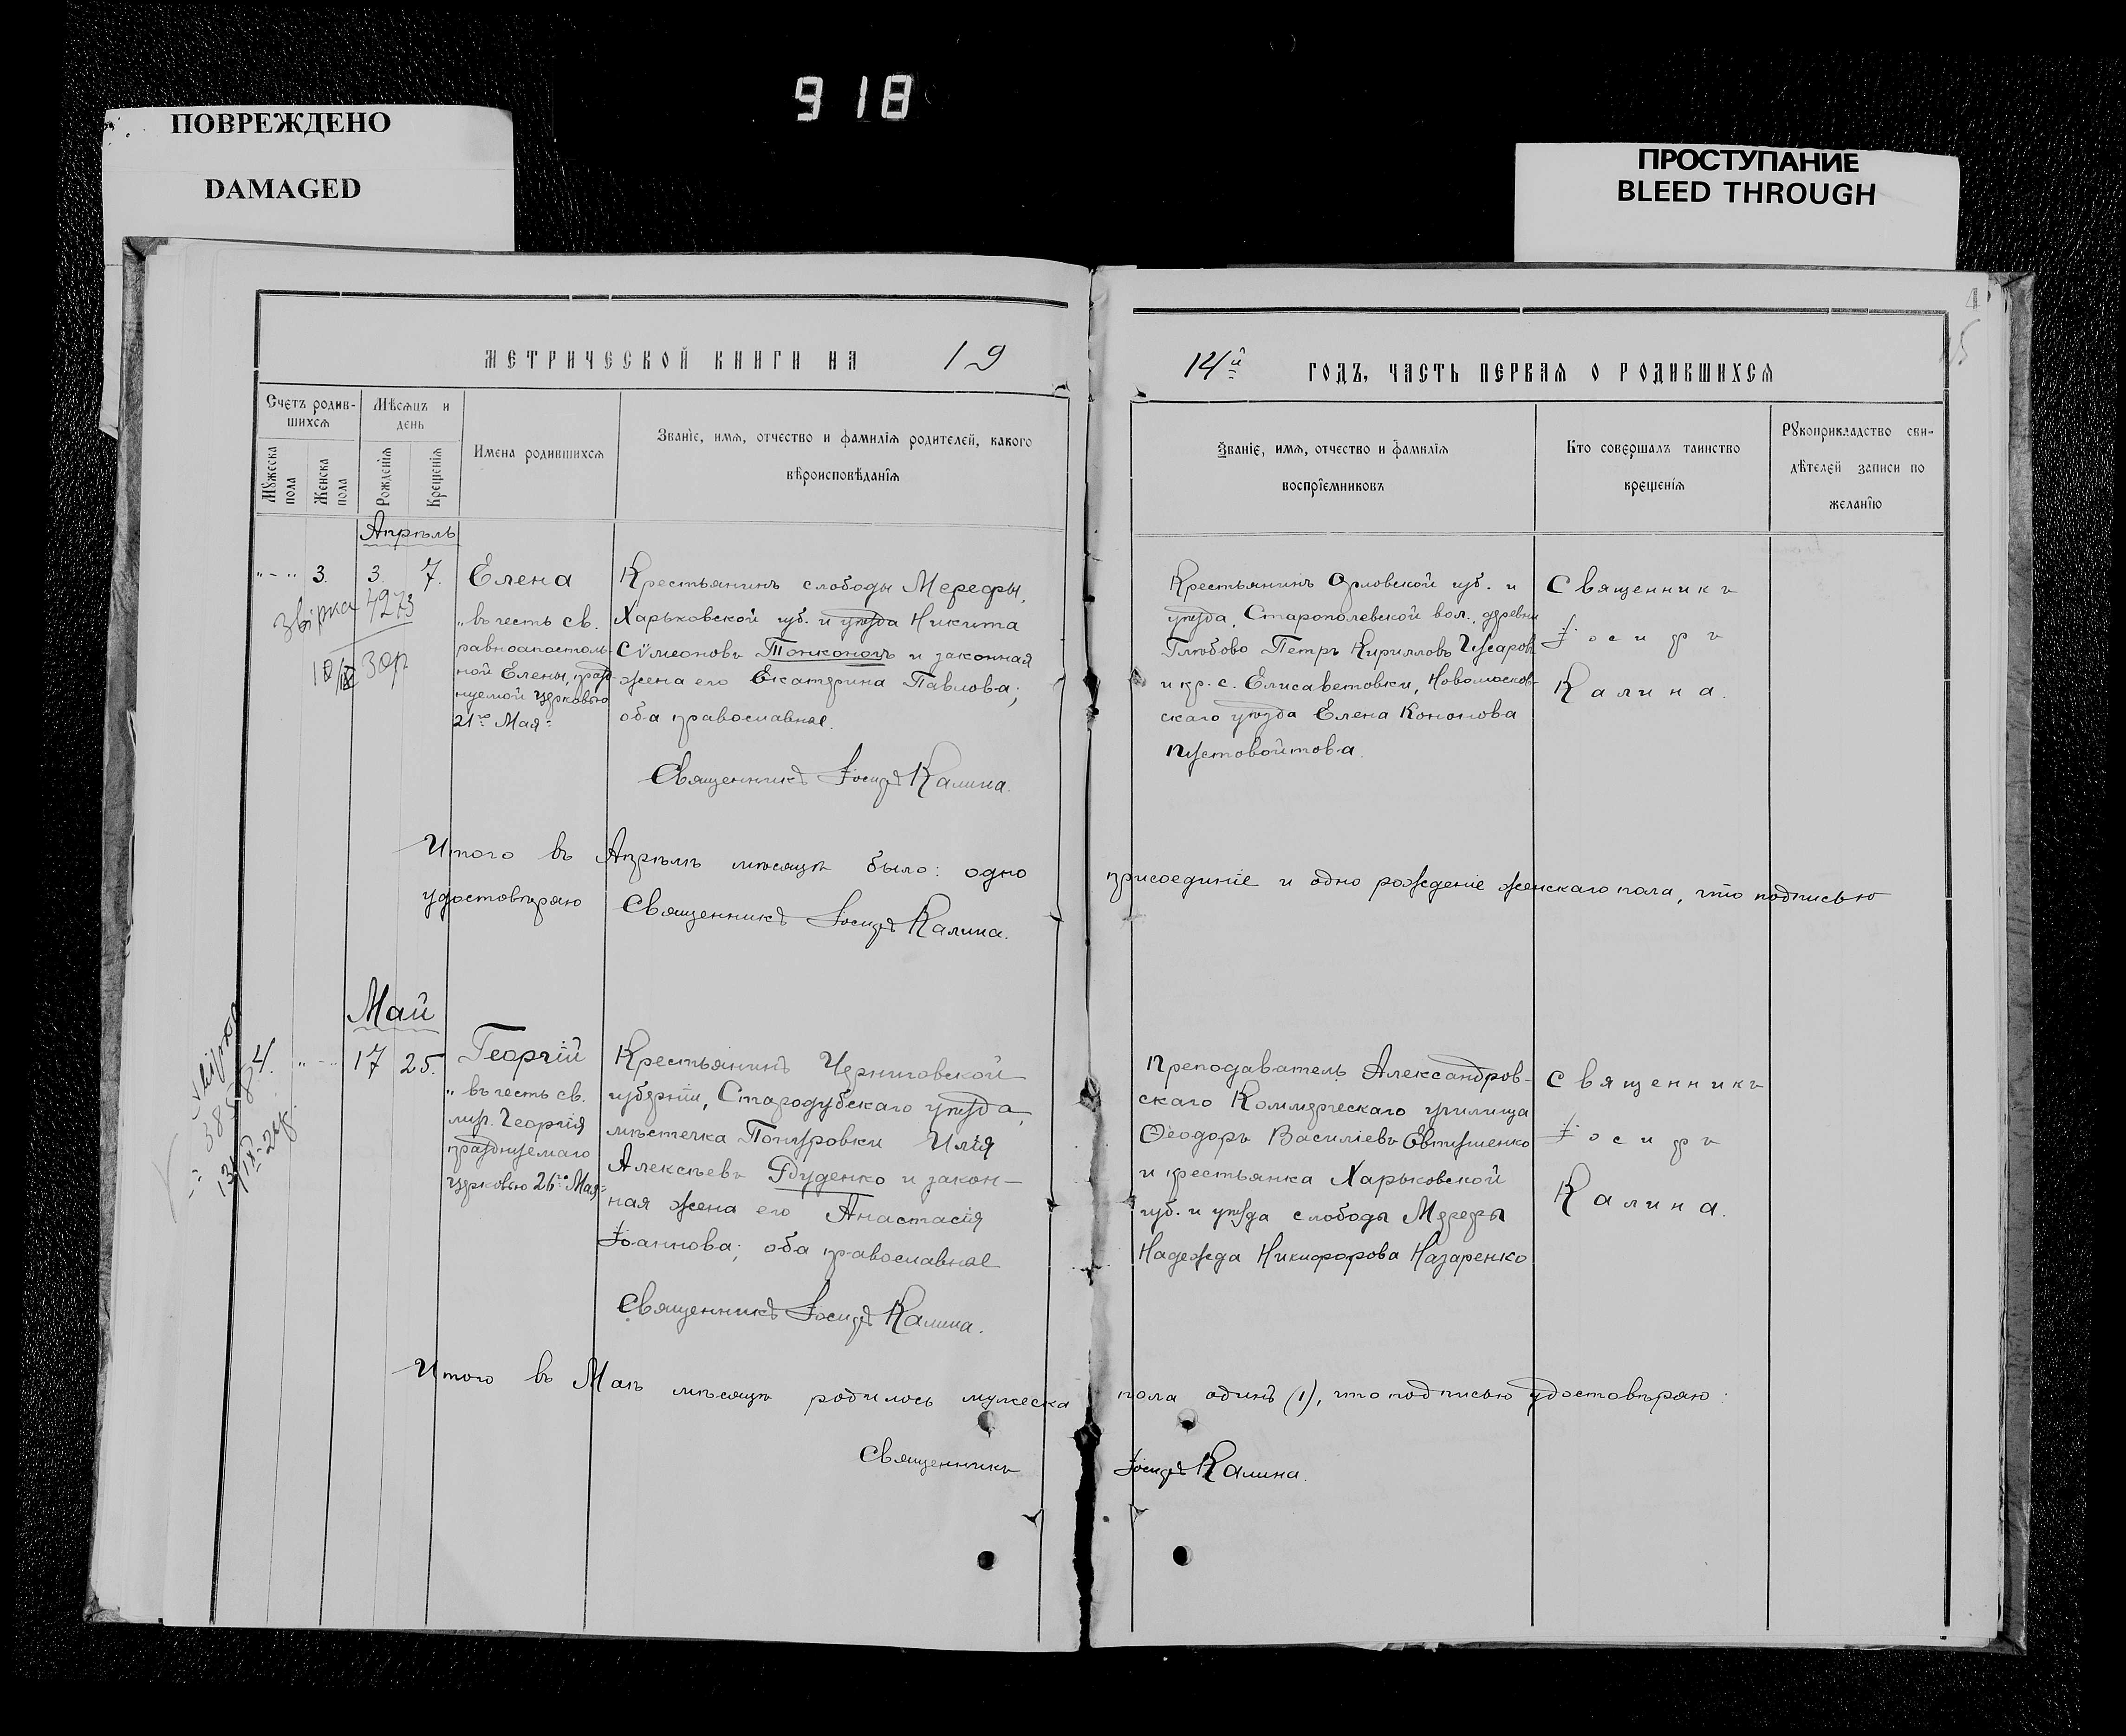 918
ПОВРЕЖДЕНО
DAMAGED
ПРОСТУПАНИЕ
BLEED THROUGH
МЕТРИЧЕСКОЙ КНИГИ НА 19
Счетъ родив-
шихся
Мужеска
пола
Женска
пола
Мѣсяцъ и
день
Рожденія
Крещенія
Имена родившихся
Званіе, имя, отчество и фамилія родителей, какого
вѣроисповѣданія
Апрѣль
"-" 3. 3. 7.
звірка 4273
Елена
"въ честь св.
равноапостоль-
ной Елены, празд-
нуемой церковью
21го Мая=
Крестьянинъ слободы Мерефы,
Харьковской губ. и уѣзда Никита
Сѵмеоновъ Тонконогъ и законная
жена его Екатерина Павлова;
оба православные.
Священникъ Іосифъ Калина.
Итого въ Апрѣлѣ мѣсяцѣ было: одно
удостовѣряю Священникъ Іосифъ Калина.
Май
звірка
4. 17 25.
Георгій
"въ честь св.
муч. Георгія
празднуемаго
церковью 26го Мая=
Крестьянинъ Черниговской
губерніи, Стародубскаго уѣзда,
мѣстечка Понуровки Илія
Алексѣевъ Руденко и закон-
ная жена его Анастасія
Іоаннова; оба православные
Священникъ Іосифъ Калина.
Итого въ Маѣ мѣсяцѣ родилось мужеска
Священникъ
14й ГОДЪ, ЧАСТЬ ПЕРВАЯ О РОДИВШИХСЯ
Званіе, имя, отчество и фамилія
воспріемниковъ
Кто совершалъ таинство
крещенія
Рукоприкладство сви-
дѣтелей записи по
желанію
Крестьянинъ Орловской губ. и
уѣзда, Старополевской вол., деревни
Глѣбово Петръ Кирилловъ Гусаровъ
и кр. с. Елисаветовки, Новомосков-
скаго уѣзда Елена Кононова
Пустовойтова.
Священникъ
Іосифъ
Калина.
присоединіе и одно рожденіе женскаго пола, что подписью
Преподаватель Александров-
скаго Коммерческаго училища
Ѳеодоръ Василіевъ Евтушенко
и крестьянка Харьковской
губ. и уѣзда слободы Мерефы
Надежда Никифорова Назаренко
Священникъ
Іосифъ
Калина.
пола одинъ (1), что подписью удостовѣряю:
Іосифъ Калина.